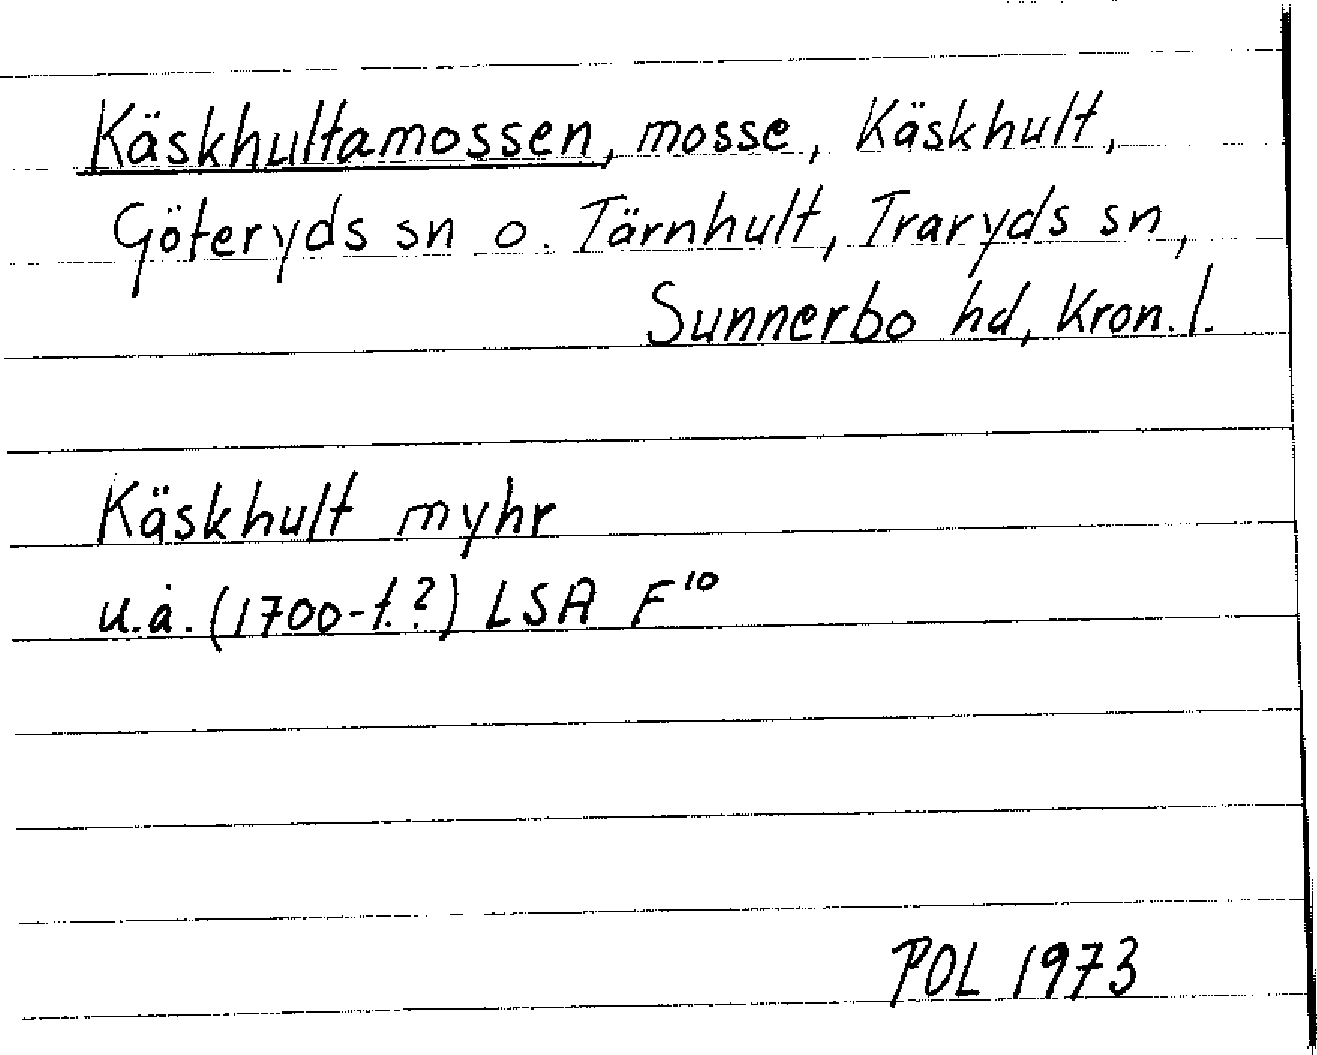 Käskhultamossen, mosse, Käskhult,
Göteryds sn o. Tärnhult, Traryds sn,
Sunnerbo hd, Kron. l.
Käskhult myhr
u.å. (1700-t.?) LSA F¹⁰
POL 1973